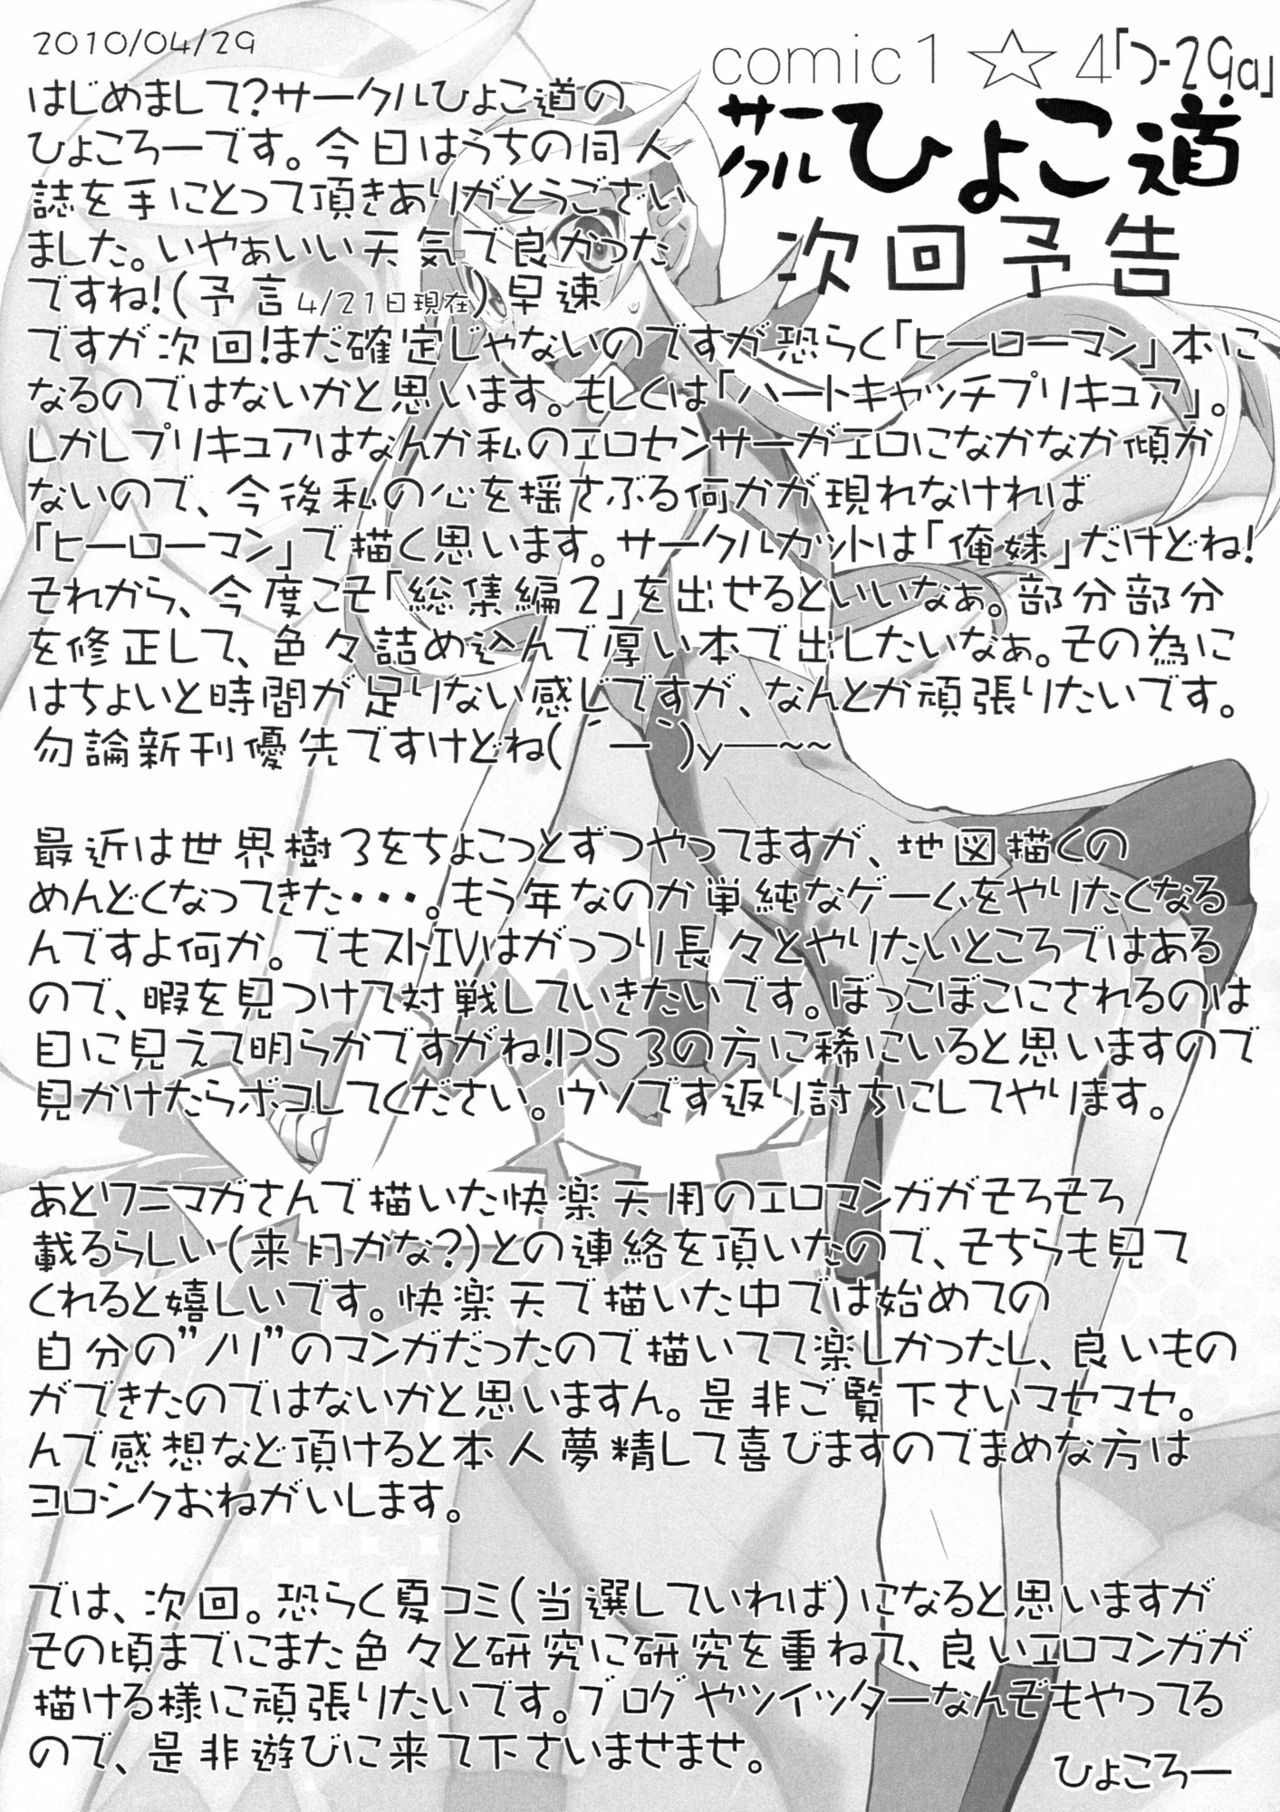 2010/04/29
comic1☆4「つ-29a」
サークルひよこ道
次回予告
はじめまして?サークルひよこ道の
ひょころーです。今日はうちの同人
誌を手にとって頂きありがとうござい
ました。いやぁいい天気で良かった
ですね!(予言4/21日現在)早速
ですが次回!まだ確定じゃないのですが恐らく「ヒーローマン」本に
なるのではないかと思います。もしくは「ハートキャッチプリキュア」。
しかしプリキュアはなんか私のエロセンサーがエロになかなか傾か
ないので、今後私の心を揺さぶる何かが現れなければ
「ヒーローマン」で描く思います。サークルカットは「俺妹」だけどね!
それから、今度こそ「総集編2」を出せるといいなぁ。部分部分
を修正して、色々詰め込んで厚い本で出したいなぁ。その為に
はちょいと時間が足りない感じですが、なんとか頑張りたいです。
勿論新刊優先ですけどね( ´ー`)y─~~
最近は世界樹3をちょこっとずつやってますが、地図描くの
めんどくなってきた・・・。もう年なのか単純なゲームをやりたくなる
んですよ何か。でもストIVはがっつり長々とやりたいところではある
ので、暇を見つけて対戦していきたいです。ぼっこぼこにされるのは
目に見えて明らかですがね!PS3の方に稀にいると思いますので
見かけたらボコしてください。ウソです返り討ちにしてやります。
あとワニマガさんで描いた快楽天用のエロマンガがそろそろ
載るらしい(来月かな?)との連絡を頂いたので、そちらも見て
くれると嬉しいです。快楽天で描いた中では始めての
自分の”ノリ”のマンガだったので描いてて楽しかったし、良いもの
ができたのではないかと思いますん。是非ご覧下さいマセマセ。
んで感想など頂けると本人夢精して喜びますのでまめな方は
ヨロシクおねがいします。
では、次回。恐らく夏コミ(当選していれば)になると思いますが
その頃までにまた色々と研究に研究を重ねて、良いエロマンガが
描ける様に頑張りたいです。ブログやツイッターなんぞもやってる
ので、是非遊びに来て下さいませませ。
ひょころー